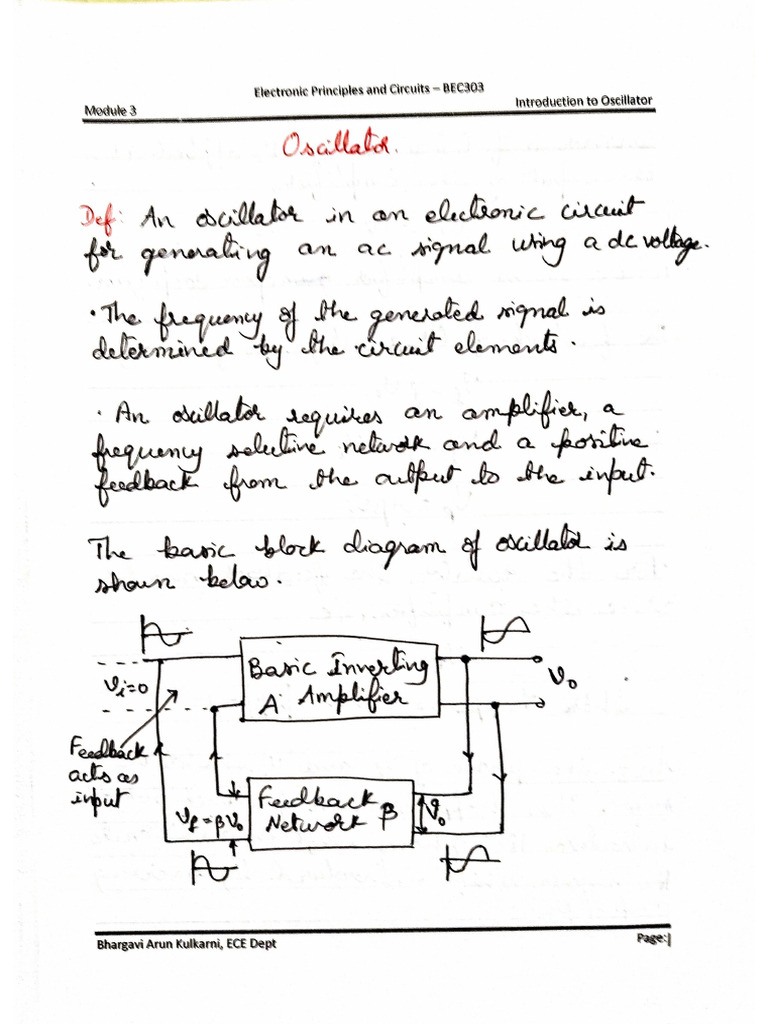 Electronic Principles and Circuits – BEC303
Module 3
Introduction to Oscillator
Oscillator.
Def: An oscillator in an electronic circuit
for generating an ac signal using a dc voltage.
• The frequency of the generated signal is
determined by the circuit elements.
• An oscillator requires an amplifier, a
frequency selective network and a positive
feedback from the output to the input.
The basic block diagram of oscillator is
shown below.
Vi=0
Basic Inverting
A Amplifier
Vo
Feedback
acts as
input
Vf = βVo
Feedback
Network β
Vo
Bhargavi Arun Kulkarni, ECE Dept
Page:|